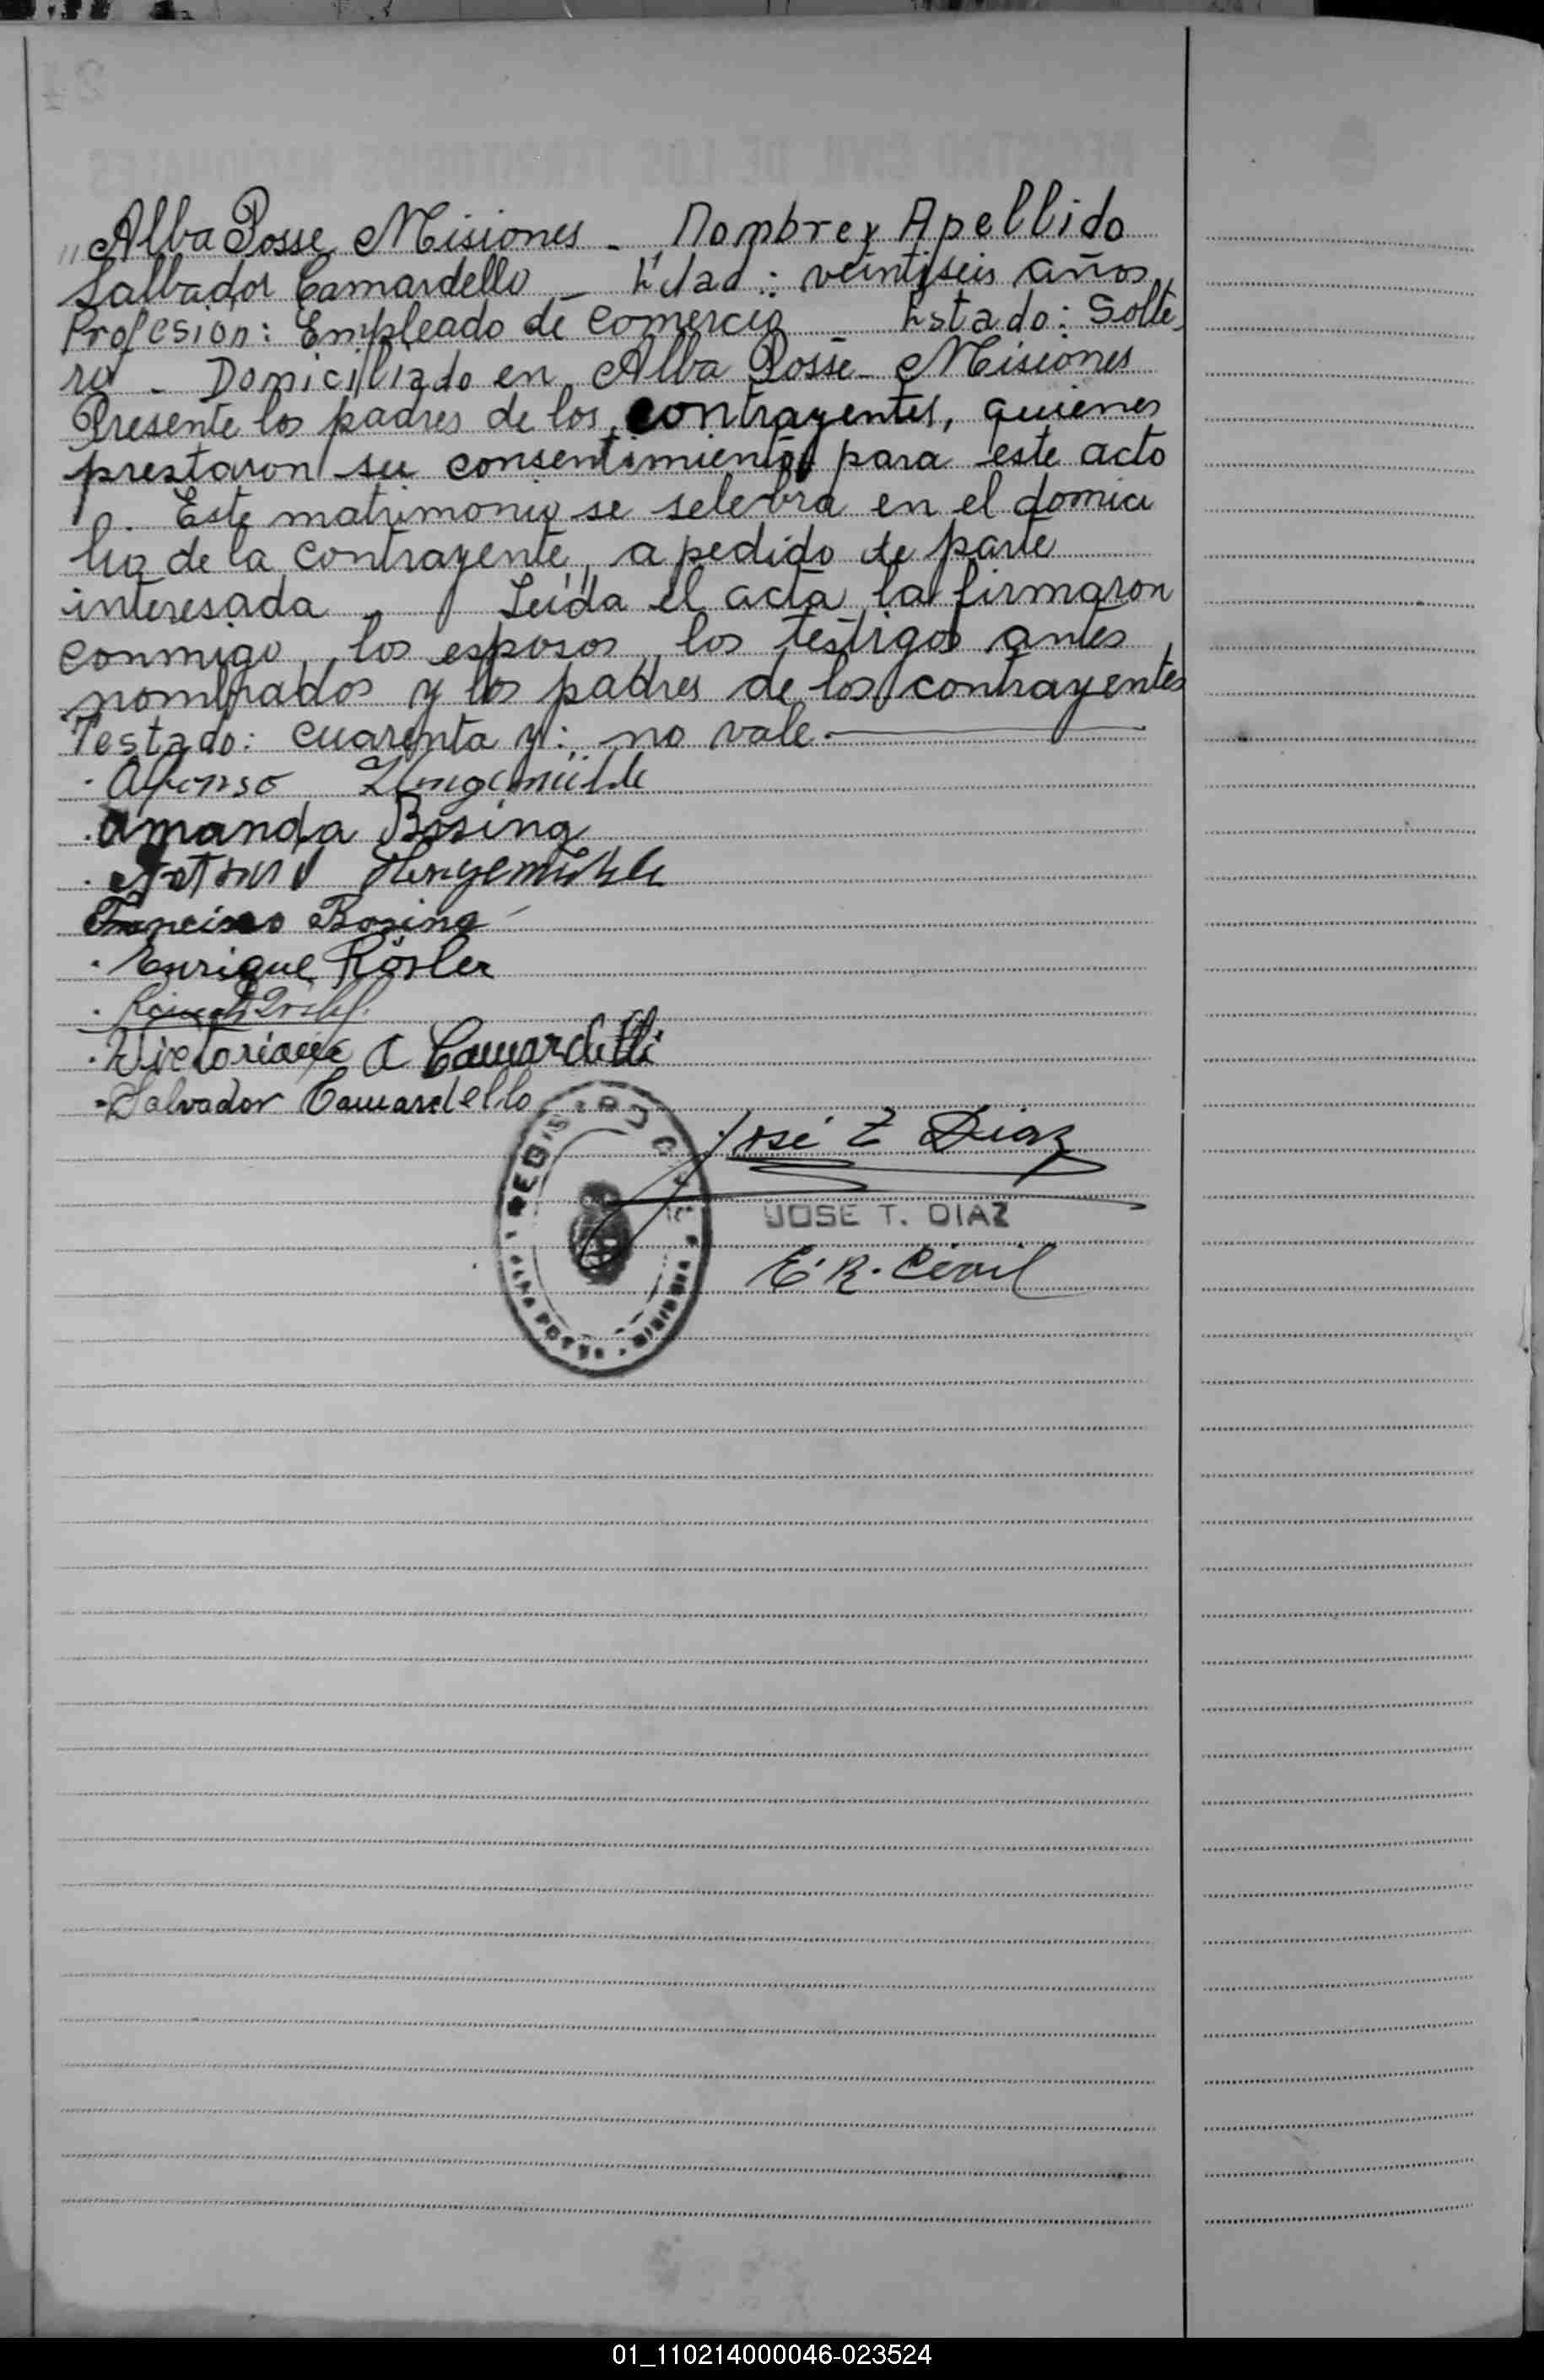 "Alba Posse Misiones - Nombre y Apellido
Salbador Camardello - Edad: veintiseis años
Profesion: Empleado de comercio Estado: Solte
ro - Domiciliado en Alba Posse - Misiones
Presente los padres de los contrayentes, quienes
prestaron su consentimiento para este acto
. Este matrimonio se selebra en el domici
lio de la contrayente, a pedido de parte
interesada. Leida el acta la firmaron
conmigo, los esposos, los testigos antes
nombrados y los padres de los contrayentes
Testado: cuarenta y: no vale.
Afonso Hengemühle
Amanda Bosing
Hengemühle
Francisco Bosing
Enrique Rösler

Victoriana A Camardelli
Salvador Camardello
José T Diaz
JOSE T. DIAZ
E. R. Civil
REGISTRO CIVIL
ALBA POSSE - MISIONES
01_110214000046-023524